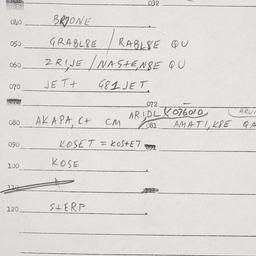 032
040 BRIONE
050 GRABL8E / RABL8E QU
060 ZRIJE / NASTEN8E QU
070 JET+ G81JET
072
080 AKAPA, C+ CM ARIDL
081 AMATI, K8E QA
090 KOSET = KOSTET
100 KOSE
120 STERP